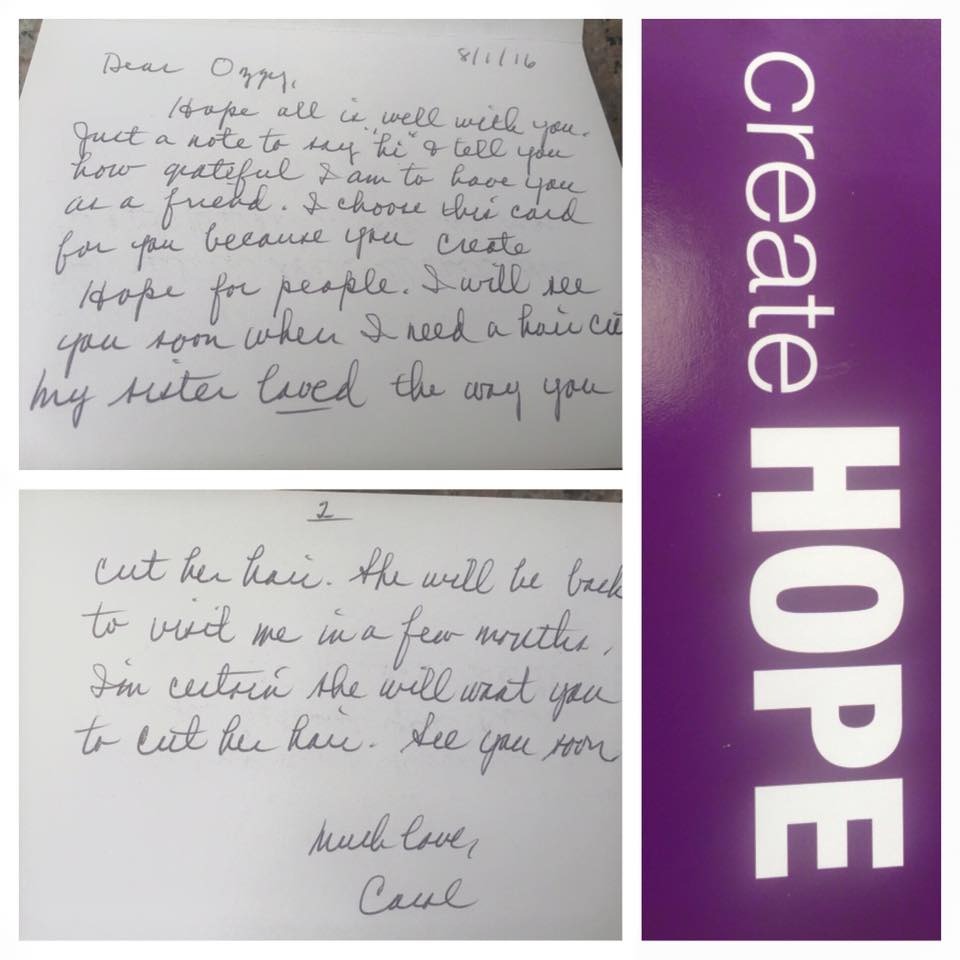 8/1/16
Dear Ozzy,
Hope all is well with you.
Just a note to say "hi" & tell you
how grateful I am to have you
as a friend. I choose this card
for you because you create
Hope for people. I will see
you soon when I need a hair cu
my sister loved the way you
2
cut her hair. She will be back
to visit me in a few months.
I'm certain she will want you
to cut her hair. See you soon
Much love,
Carol
create HOPE